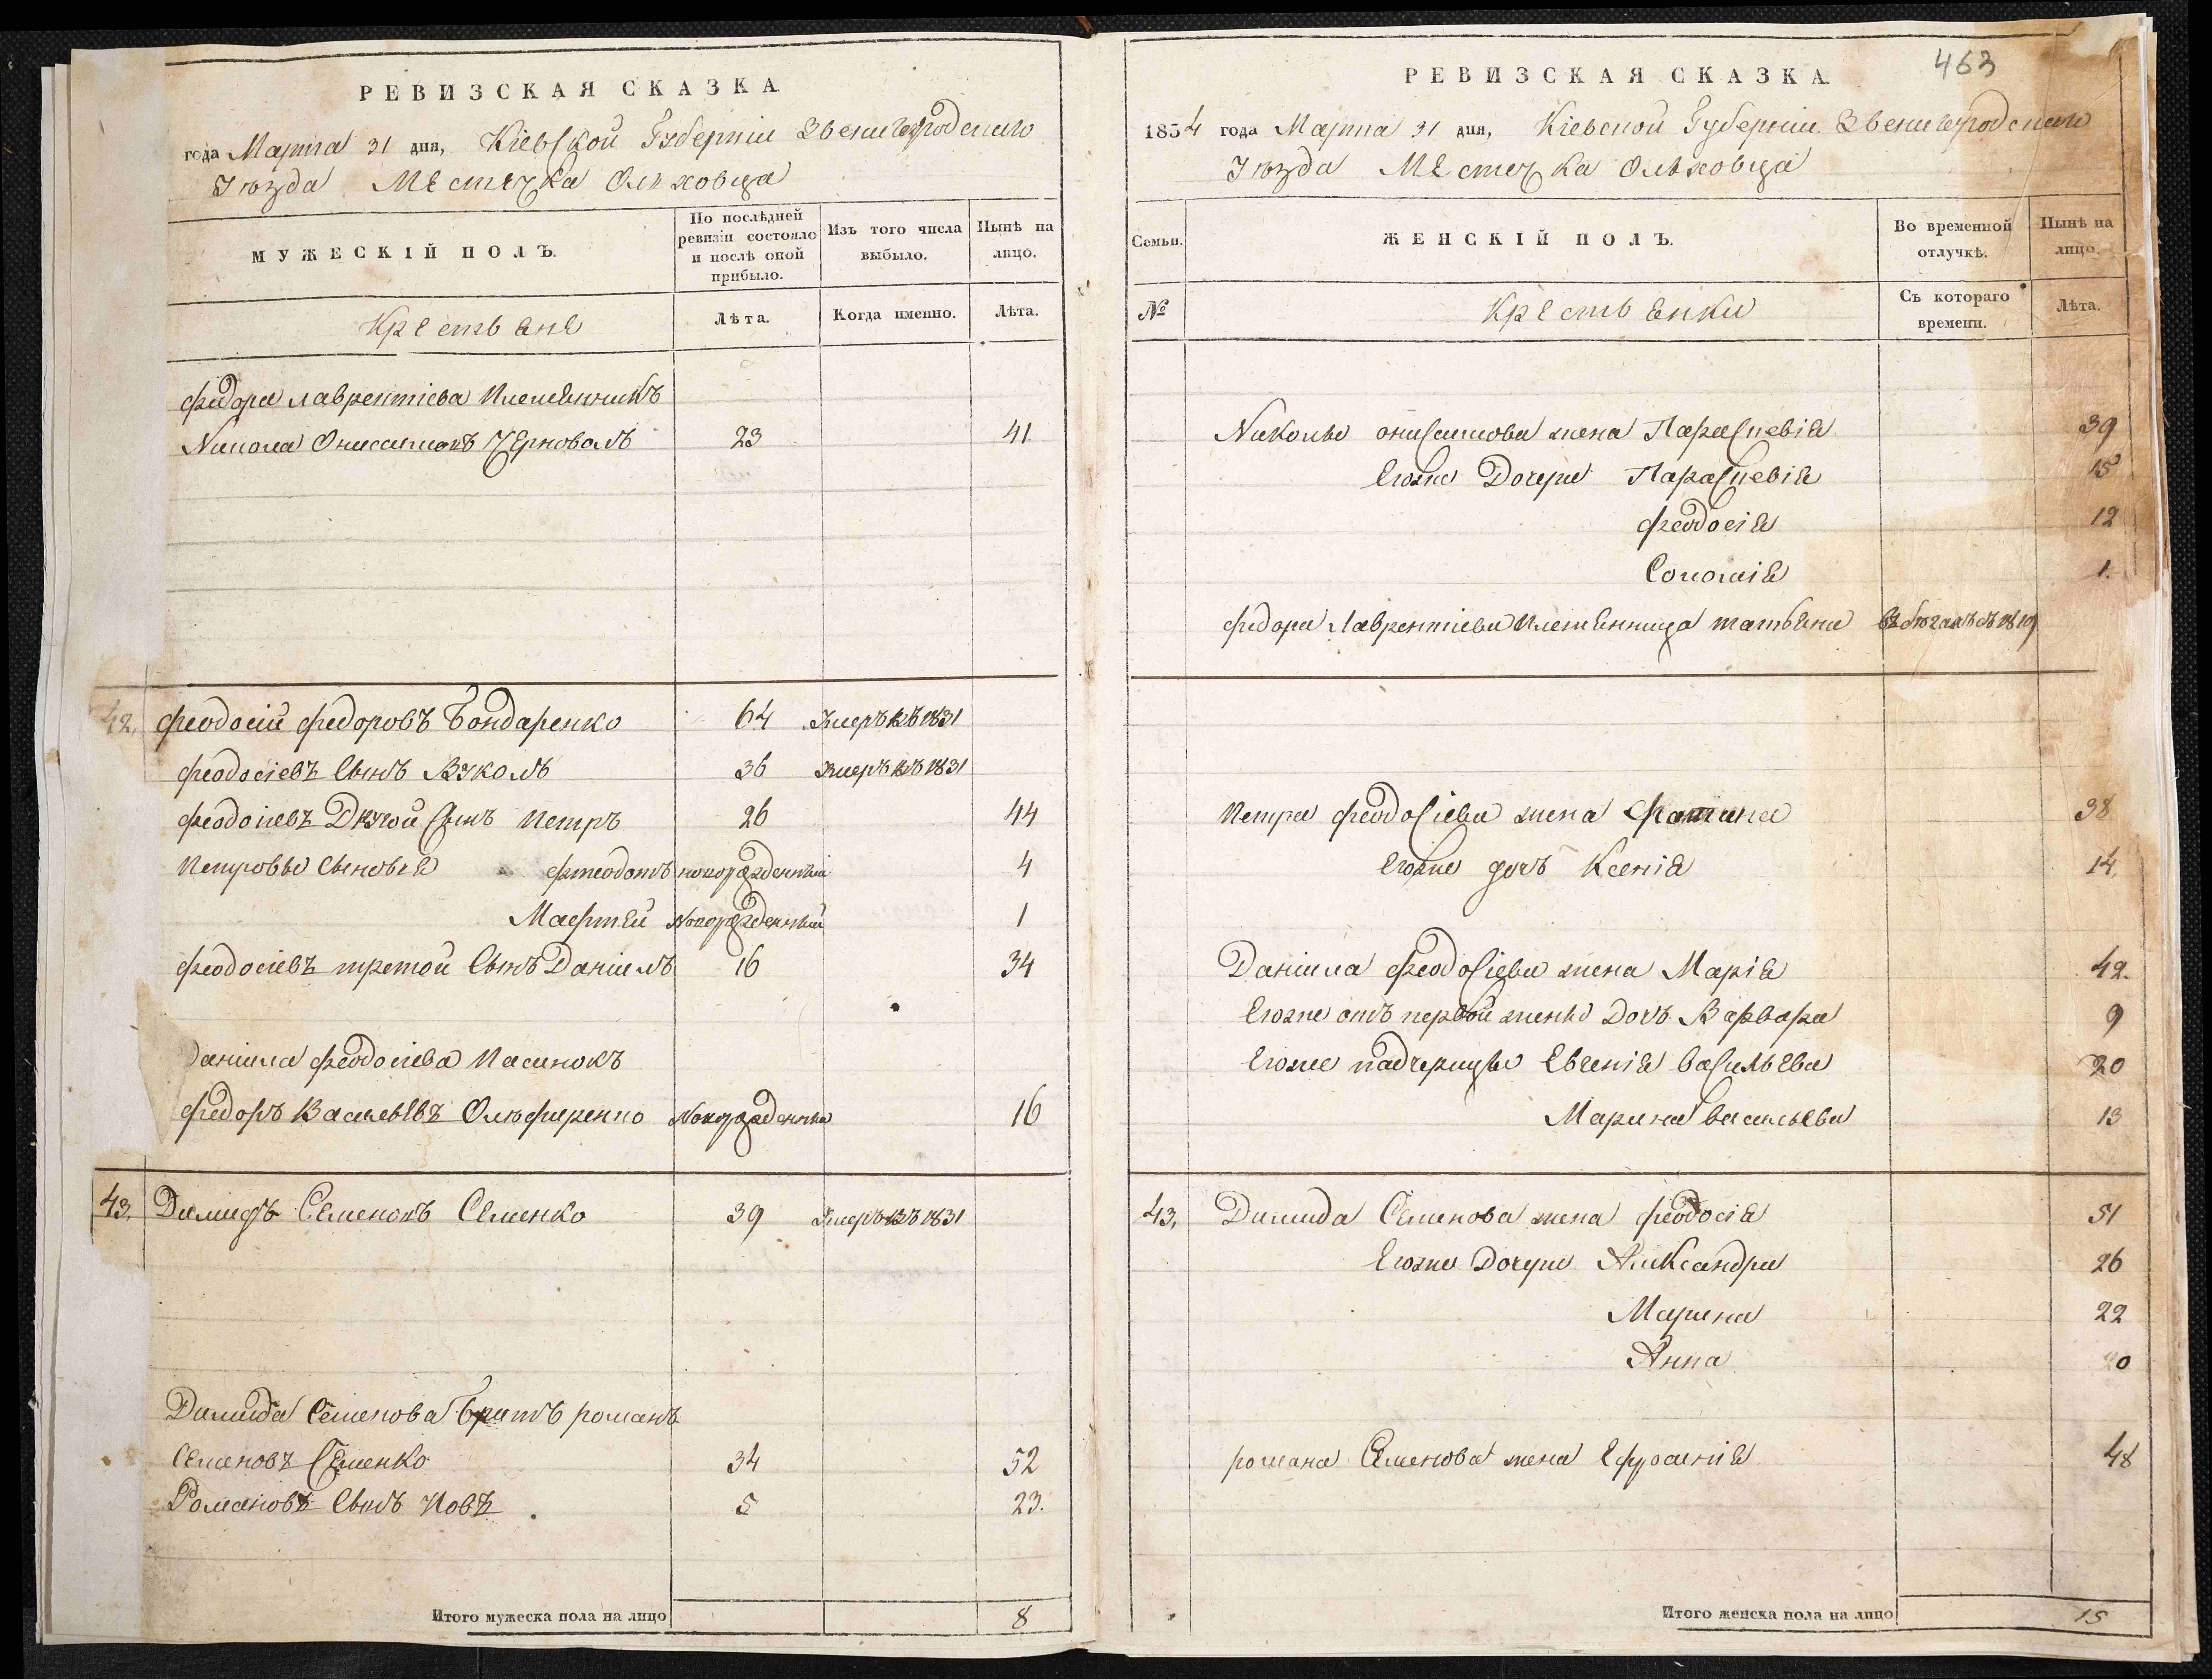 РЕВИЗСКАЯ СКАЗКА.
года Марта 31 дня, Кіевской Губерніи Звенигородскаго
Уѣзда Местечка Ольховца
МУЖЕСКІЙ ПОЛЪ.
По послѣдней ревизіи состояло и послѣ оной прибыло.
Изъ того числа выбыло.
Нынѣ на лицо.
Крестьяне
Лѣта.
Когда именно.
Лѣта.
Федора Лаврентіева Племянникъ
Никола Онисимовъ Черноволъ 23 41
42, Феодосій Федоровъ Бондаренко 64 Умеръ въ 1831
Феодосіевъ Сынъ Вуколъ 36 Умеръ въ 1831
Феодосіевъ Другой Сынъ Петръ 26 44
Петровы Сыновья Феодотъ новорожденный 4
Мафтей Новорожденный 1
Феодосіевъ третой Сынъ Даніилъ 16 34
Даніила Феодосіева Пасинокъ
Федоръ Васильевъ Олюференко Новорожденный 16
43, Димидъ Семеновъ Семенко 39 Умеръ въ 1831
Димида Семенова Братъ романъ
Семеновъ Семенко 34 52
Романовъ Сынъ Иовъ 5 23.
Итого мужеска пола на лицо 8
463
РЕВИЗСКАЯ СКАЗКА.
1854 года Марта 31 дня, Кіевской Губерніи Звенигородскаго
Уѣзда Местечка Ольховца
Семьи.
ЖЕНСКІЙ ПОЛЪ.
Во временной отлучкѣ.
Нынѣ на лицо.
№
Крестьянки
Съ котораго времени.
Лѣта.
Николы онисимова жена Параскевія 39
Егоже Дочери Параскевія 15
Феодосія 12
Соломія 1.
Федора Лаврентіева Племянница татьяна
Петра Феодосіева жена 38
Егоже дочь Ксенія 14,
Даніила Феодосіева жена Марія 42.
Егоже отъ первой жены Дочь Варвара 9
Егоже падчерицы Евгенія Васильева 20
Марина Васильева 13
43, Димида Семенова жена Феодосія 51
Егоже Дочери Александра 26
Марина 22
Анна 20
романа Семенова жена Ефросинія 48
Итого женска пола на лицо 15